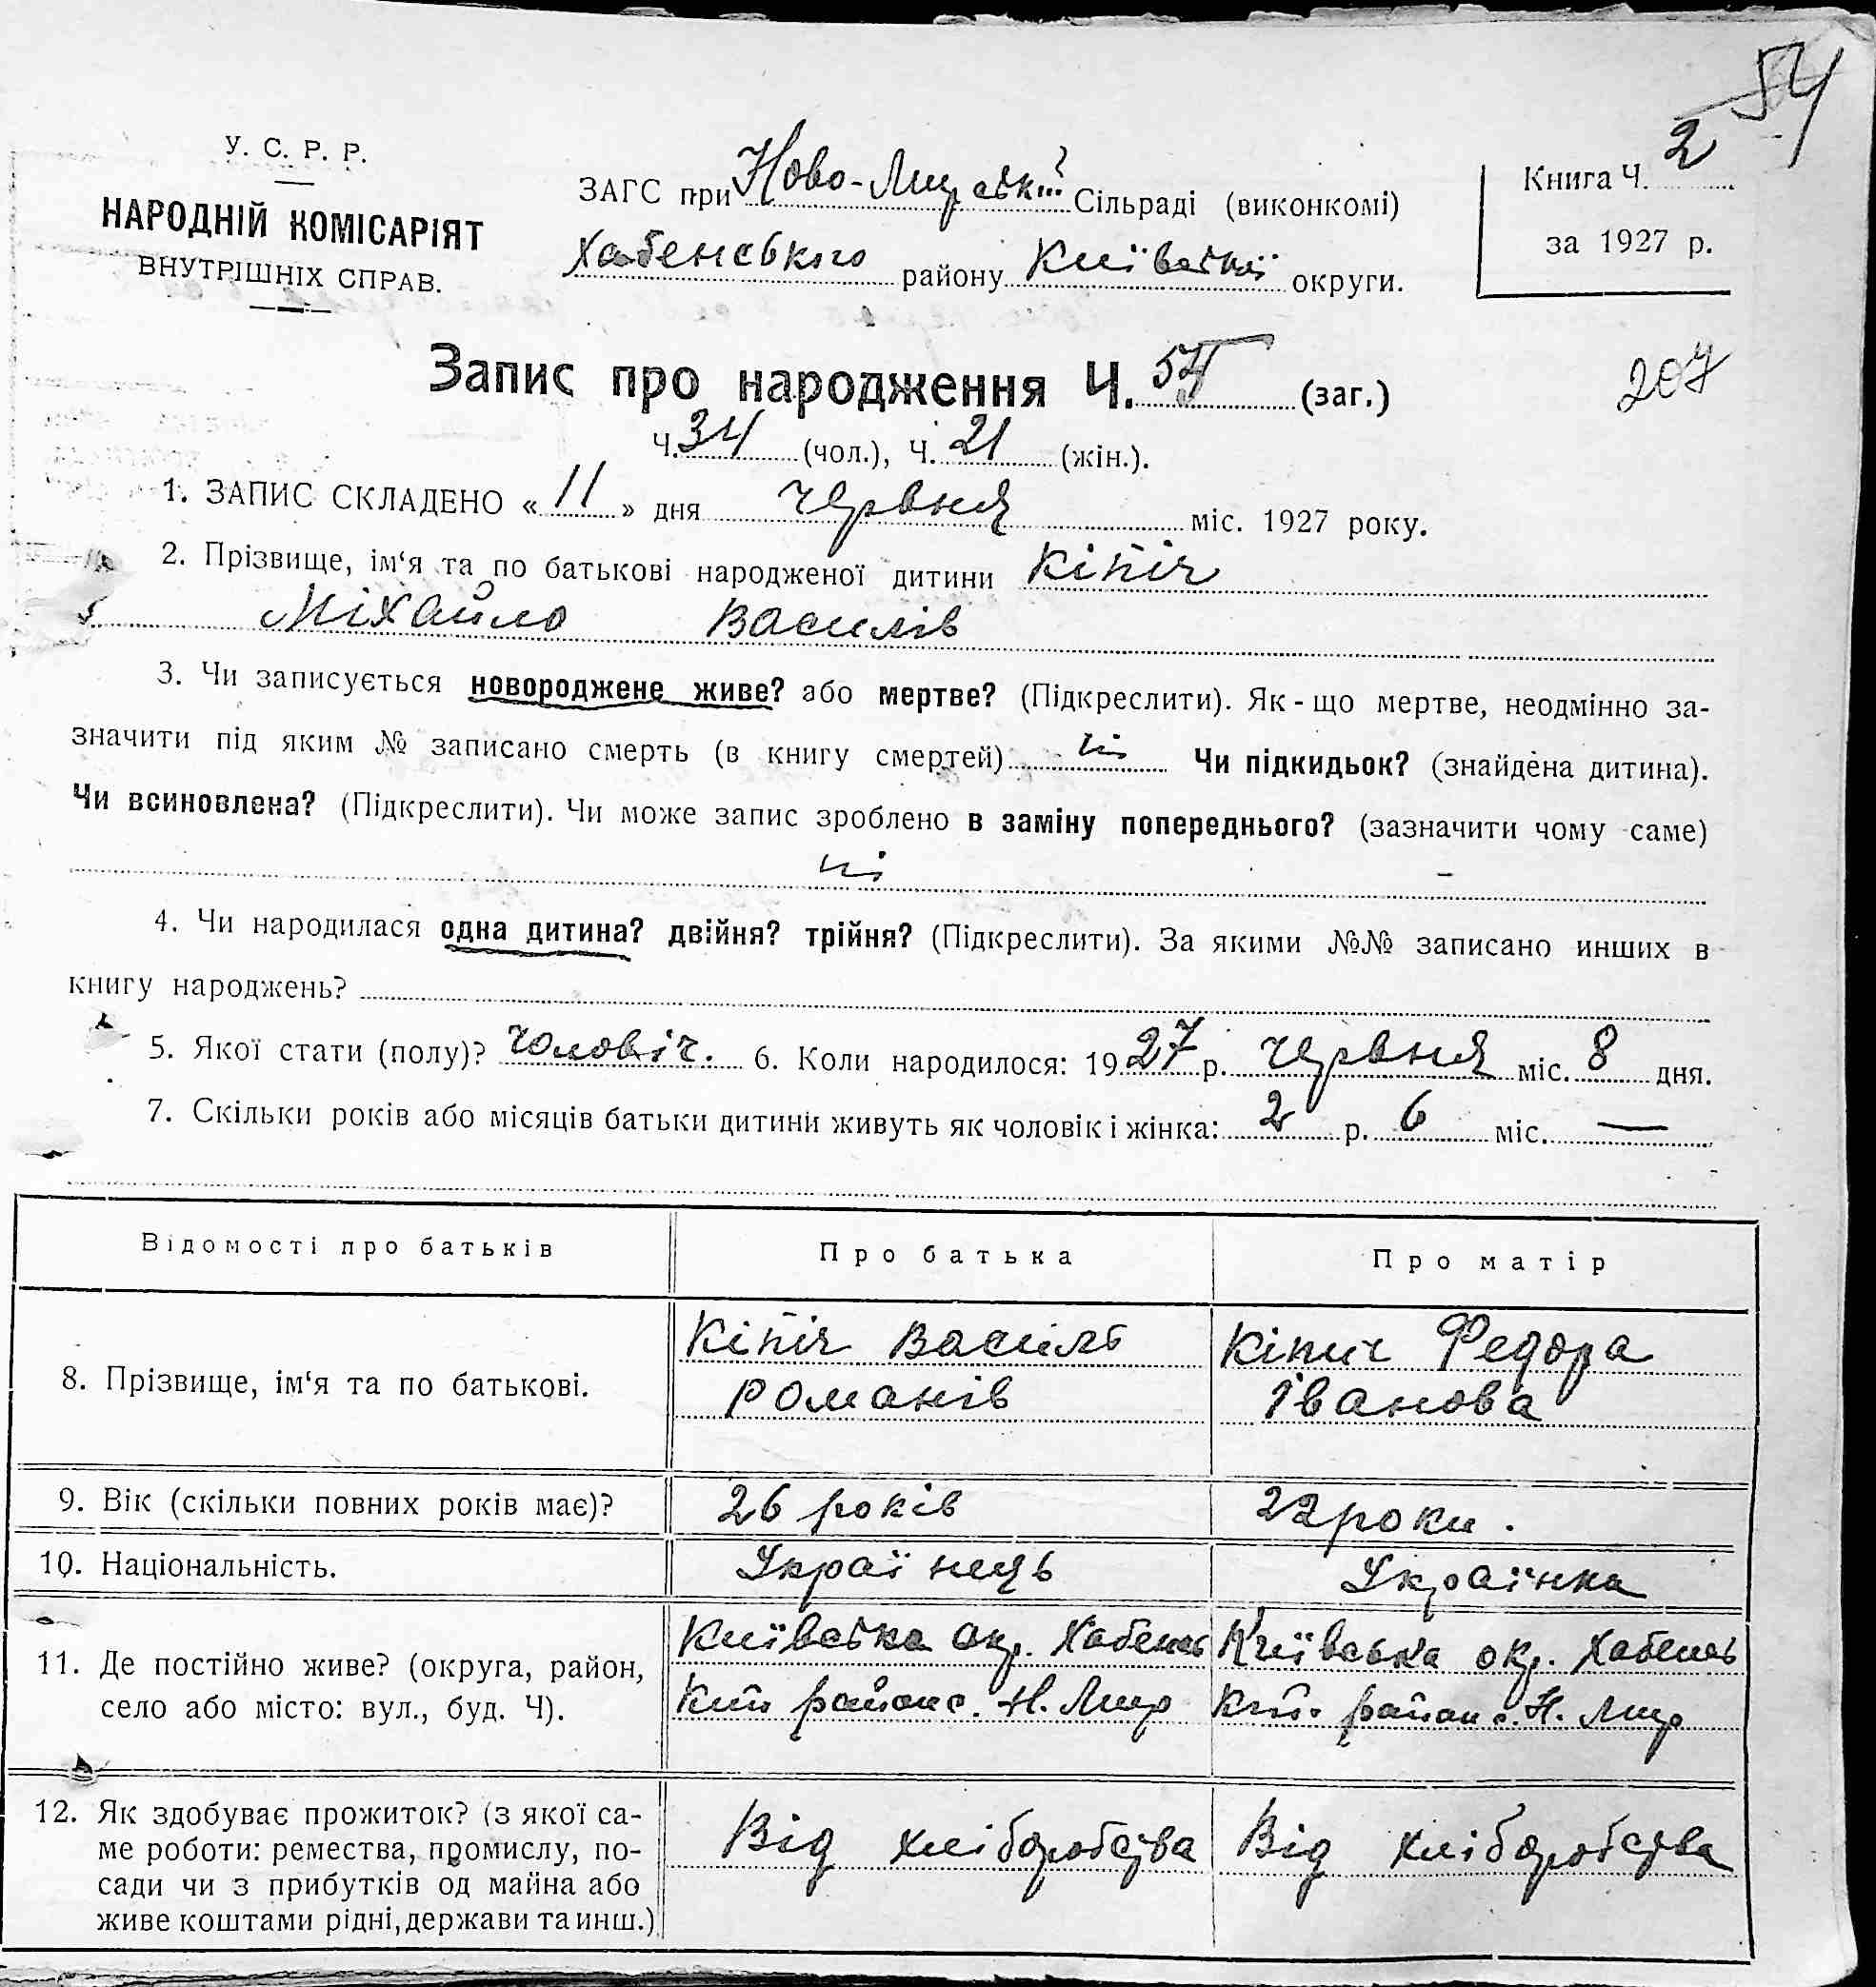 54
У. С. Р. Р.
НАРОДНІЙ КОМІСАРІЯТ
ВНУТРІШНІХ СПРАВ.
ЗАГС при Ново-Мирській Сільраді (виконкомі)
Хабенського району Київської округи.
Книга Ч. 2
за 1927 р.
Запис про народження Ч. 55 (заг.)
207
Ч. 34 (чол.), Ч. 21 (жін.).
1. ЗАПИС СКЛАДЕНО « 11 » дня червня міс. 1927 року.
2. Прізвище, ім‘я та по батькові народженої дитини Кіпіч
Міхайло Василів
3. Чи записується новороджене живе? або мертве? (Підкреслити). Як-що мертве, неодмінно за-
значити під яким № записано смерть (в книгу смертей) ні Чи підкидьок? (знайдена дитина).
Чи всиновлена? (Підкреслити). Чи може запис зроблено в заміну попереднього? (зазначити чому саме)
ні
4. Чи народилася одна дитина? двійня? трійня? (Підкреслити). За якими №№ записано инших в
книгу народжень?
5. Якої стати (полу)? чоловіч. 6. Коли народилося: 1927 р. червня міс. 8 дня.
7. Скільки років або місяців батьки дитини живуть як чоловік і жінка: 2 р. 6 міс. —
Відомості про батьків Про батька Про матір
8. Прізвище, ім‘я та по батькові. Кіпіч Василь Кіпич Федора
Романів Іванова
9. Вік (скільки повних років має)? 26 років 22 роки.
10. Національність. Українець Українка
11. Де постійно живе? (округа, район, Київська окр. Хабенсь Київська окр. Хабенсь
село або місто: вул., буд. Ч). кий район с. Н. Мир кий район с. Н. Мир
12. Як здобуває прожиток? (з якої са-
ме роботи: ремества, промислу, по- Від хліборобства Від хліборобства
сади чи з прибутків од майна або
живе коштами рідні, держави та инш.)